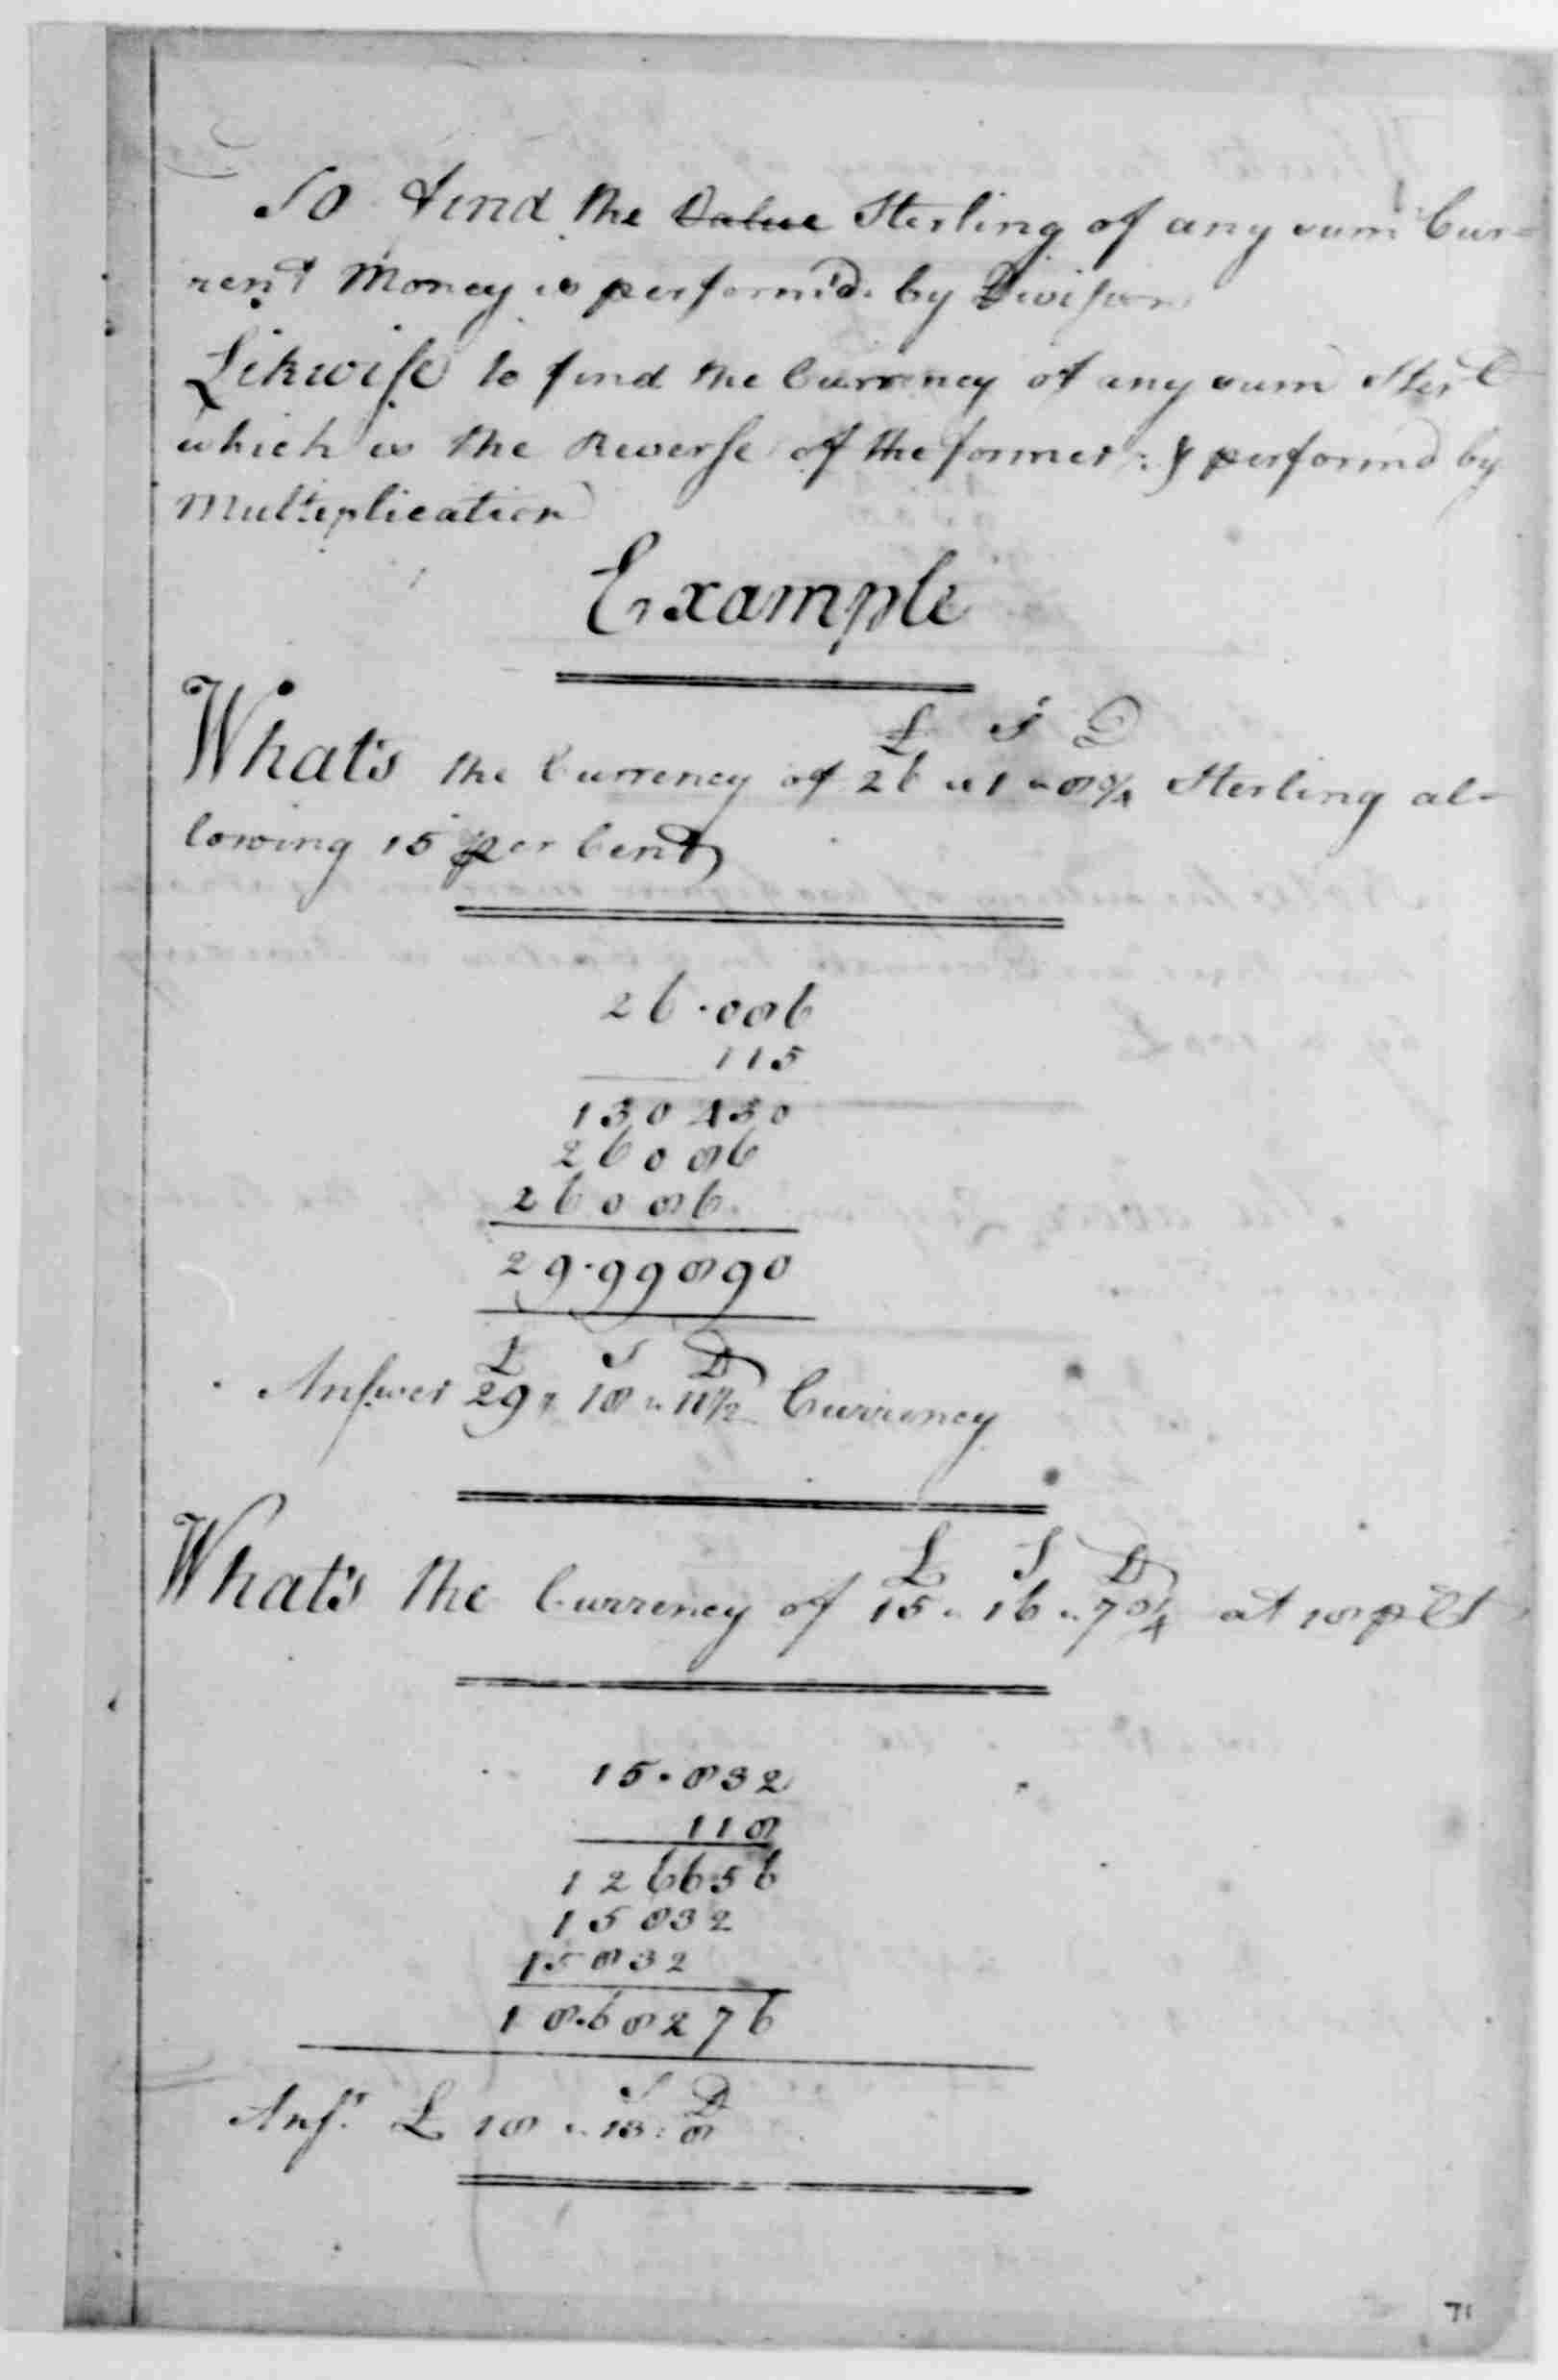 To Find the Value Sterling of any sum Cur=
rent Money is perform'd by Division
Likwise to find the Currency of any sum Ster^l
which is the Reverse of the former; & performd by
Multiplication
Example
£ S D
What's the Currency of 26 " 1 " 8 3/4 Sterling al-
lowing 15 per Cent
26.086
115
130430
26086
26086
29.99890
£ S D
Answer 29 " 18 " 11 1/2 Currency
£ S D
What's the Currency of 15 " 16 " 7 3/4 at 18 p Ct
15.832
118
126656
15832
15832
18.68276
S D
Ansr. £ 18 " 13 : 8
71